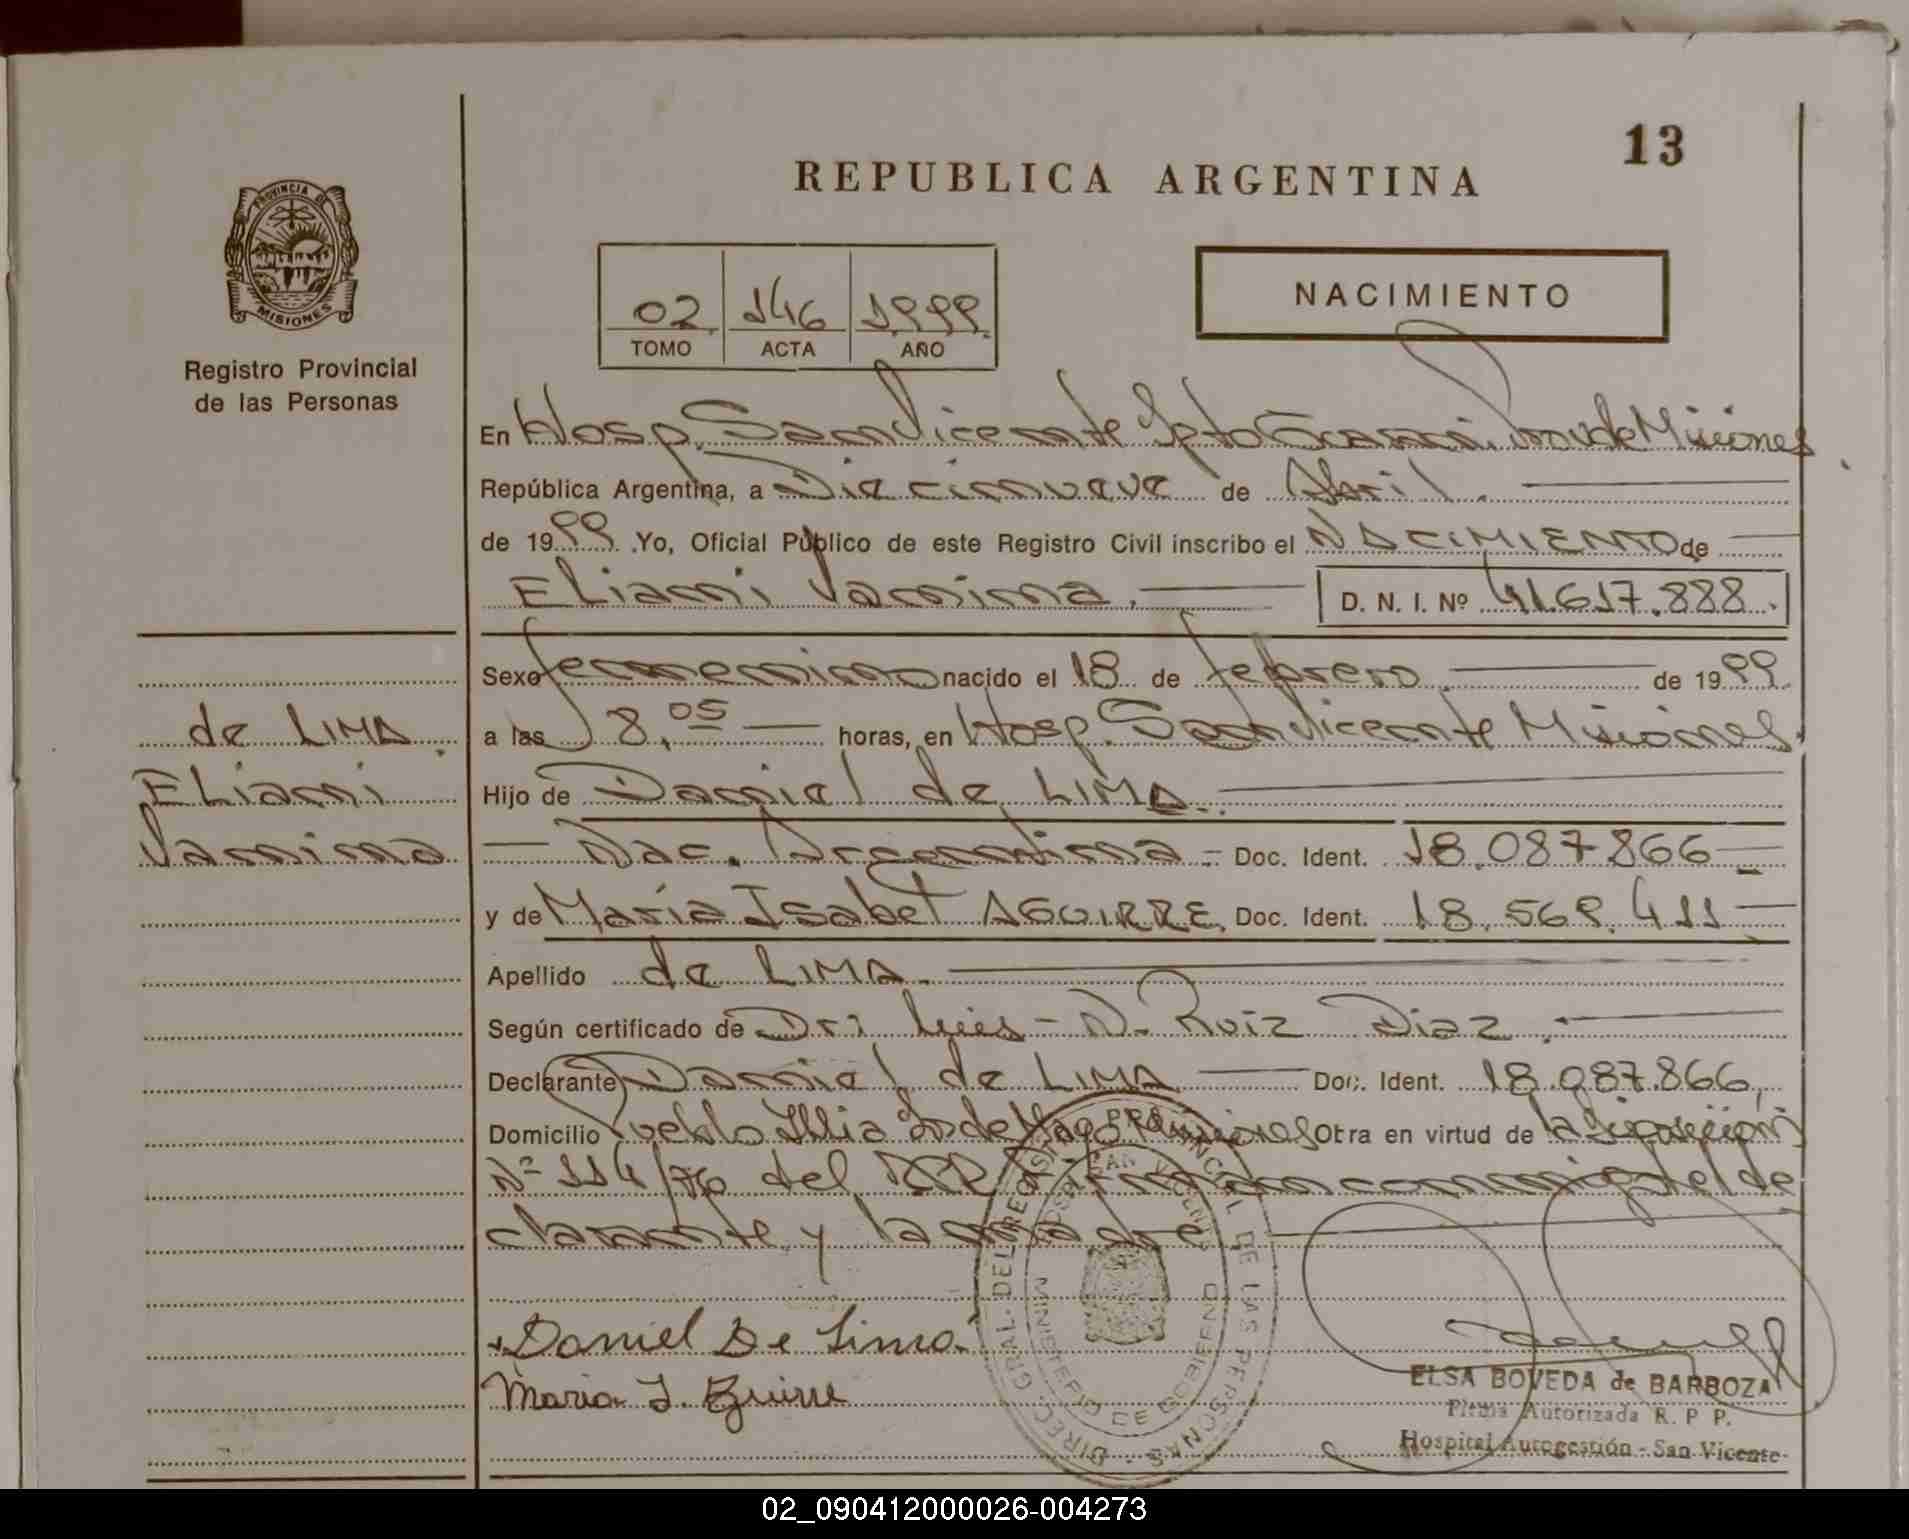 13
REPUBLICA ARGENTINA
PROVINCIA DE
MISIONES
Registro Provincial
de las Personas
02 146 1999
TOMO ACTA AÑO
NACIMIENTO
En Hosp. San Vicente Dpto Guaraní. Prov de Misiones
República Argentina, a Diecinueve de Abril.
de 1999. Yo, Oficial Público de este Registro Civil inscribo el NACIMIENTO de
Eliani Vanina. D. N. I. Nº 41.617.888.
Sexo femenino nacido el 18 de febrero. de 1999.
a las 8,05 horas, en Hosp. San Vicente Misiones.
de LIMA.
Eliani
Vanina
Hijo de Daniel de LIMA.
Nac. Argentina. Doc. Ident. 18.087.866
y de María Isabel AGUIRRE, Doc. Ident. 18.569.411
Apellido de LIMA.
Según certificado de Dr: Luis N. Ruiz Diaz.
Declarante Daniel de LIMA Doc. Ident. 18.087.866,
Domicilio Pueblo Illia Misiones Otra en virtud de la Disposición
Nº 114/76 del RPP. Firman conmigo el de
clarante y la madre
Daniel De Lima.
Maria I. Eguirre
DIREC. GRAL. DEL REGISTRO PROVINCIAL DE LAS PERSONAS
HOSP. SAN VICENTE
MINISTERIO DE GOBIERNO
ELSA BOVEDA de BARBOZA
Firma Autorizada R. P P.
Hospital Autogestión - San Vicente
02_090412000026-004273